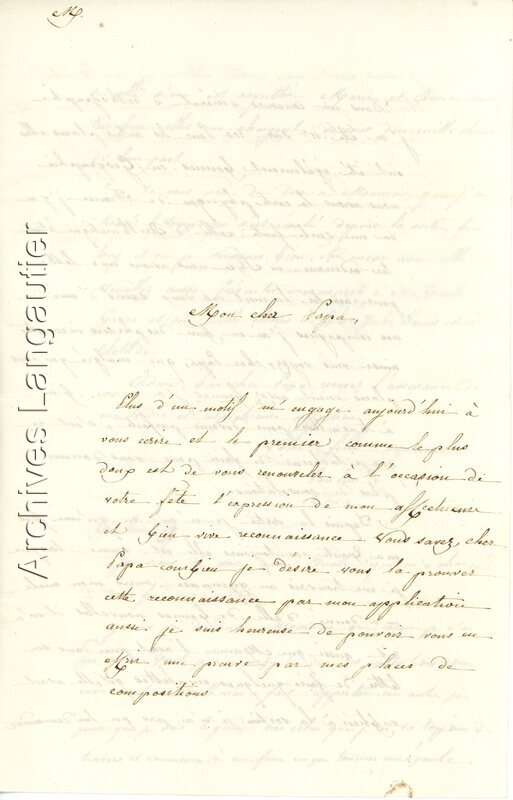 M.
Archives Langautier
Mon cher Papa,
Plus d'un motif m'engage aujourd'hui à
vous écrire et le premier comme le plus
doux est de vous renouveler à l'occasion de
votre fête l'expression de mon affectueuse
et bien vive reconnaissance Vous savez, cher
Papa combien je désire vous la prouver
cette reconnaissance par mon application
aussi je suis heureuse de pouvoir vous en
offrir une preuve par mes places de
compositions